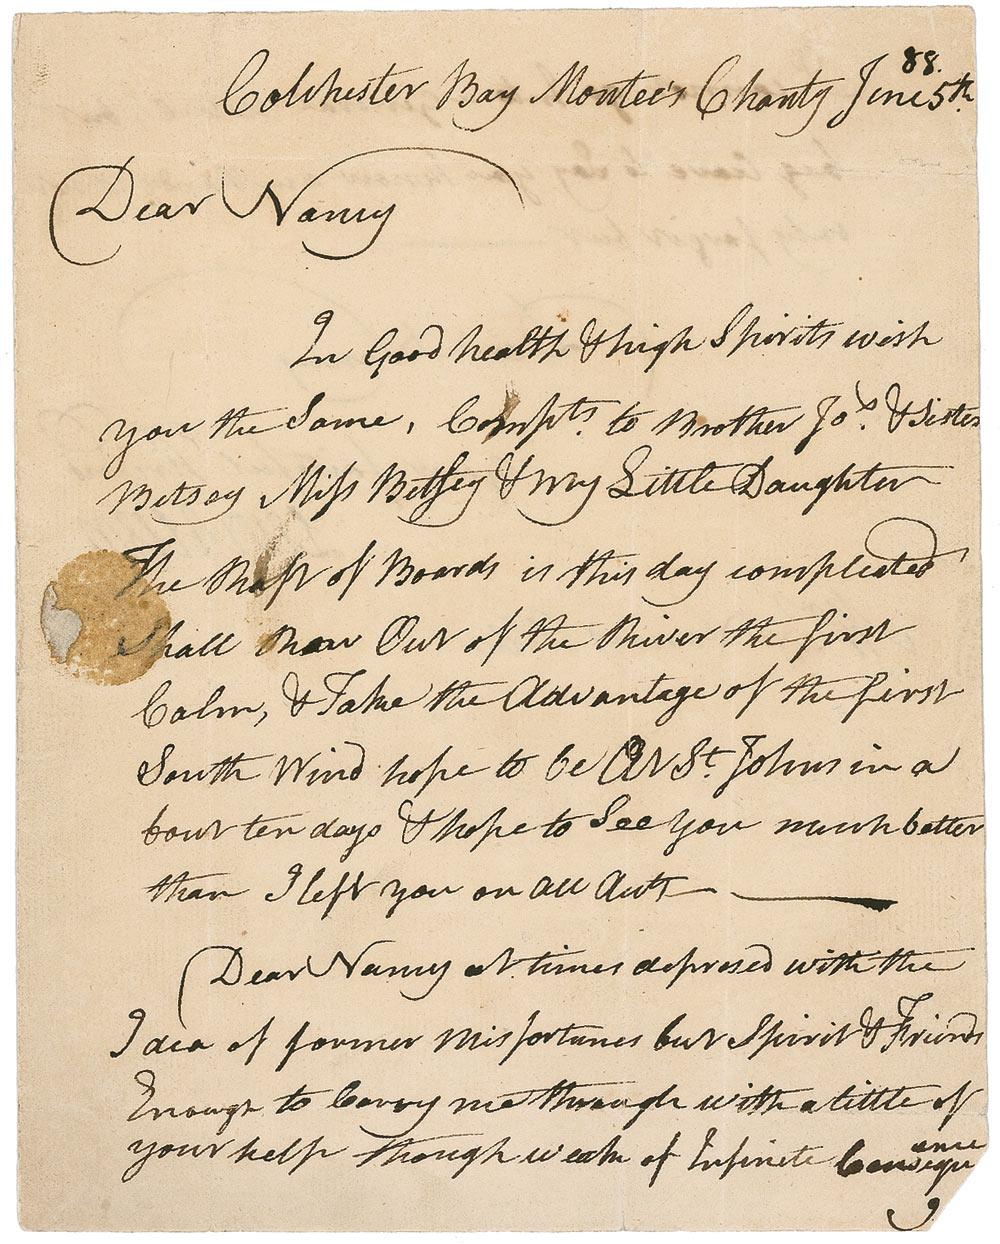 Colchester Bay Montee's Chanty June 5th 88.
Dear Nancy
In Good health & high Spirits wish
you the Same, Compts. to Brother Jos. & Sister
Betsey Miss Betsey & my Little Daughter
The Raft of Boards is this day compleated
Shall Row Out of the River the first
Calm, & Take the Advantage of the first
South Wind hope to be At St. Johns in a
bout ten days & hope to See you much better
than I left you on all Acts
Dear Nancy at times depresed with the
Idea of former misfortunes but Spirit & Friends
Enough to Carry me through with a little of
your help though weak of Infinite Consequ
ence